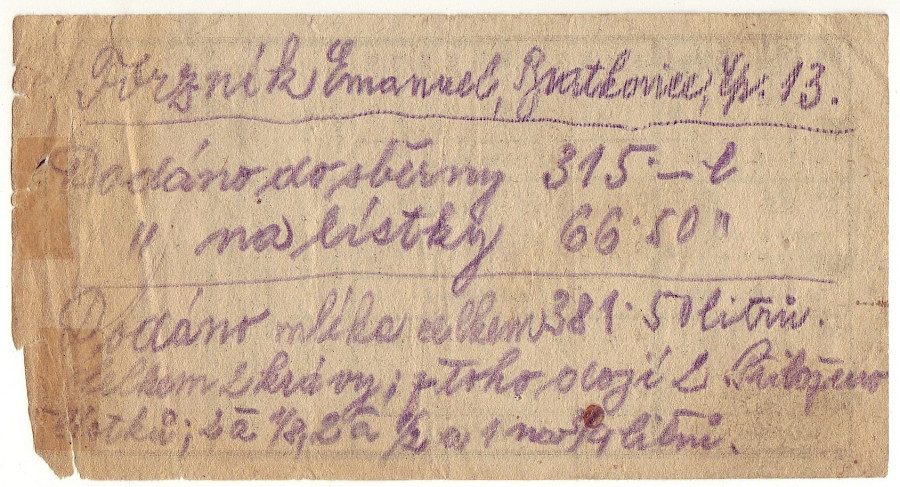 Forzník Emanuel, Bratkovice, čp. 13.
Dodáno do sběrny 315·— l
" na lístky 66·50 "
Dodáno mléka celkem 381·50 litrů.
Celkem 2 krávy; z toho dojí 2. Přiloženo
lístků; 2 à 1/8, 2 à 1/2 a 1 na 3/4 litrů.